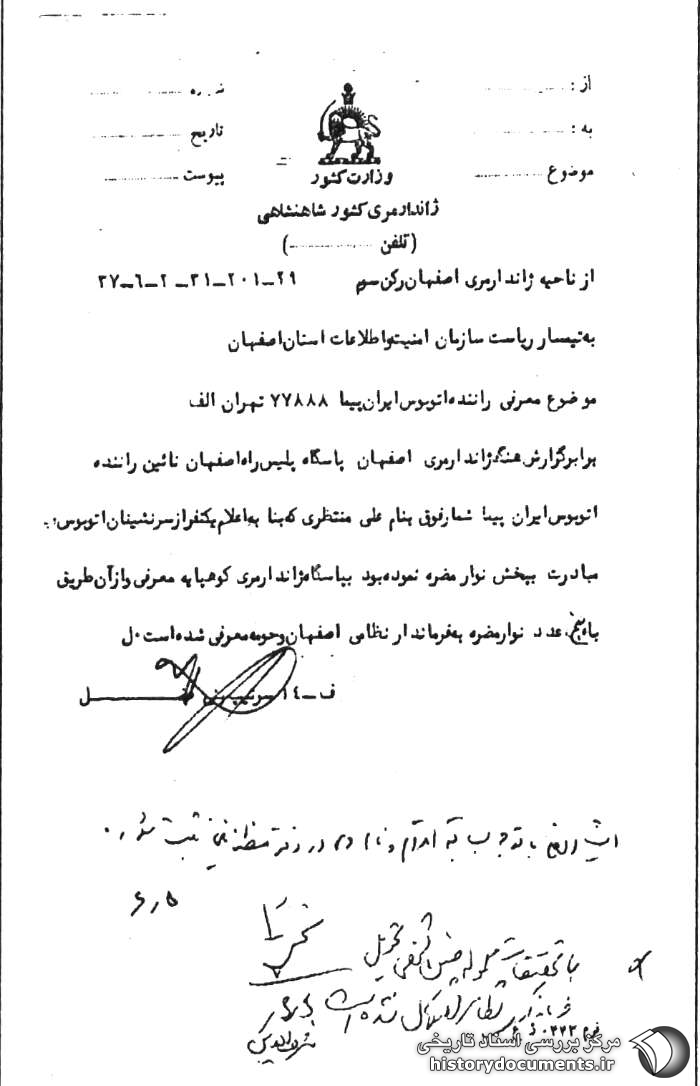 از :
به :
موضوع
شماره
تاریخ
پیوست
وزارت کشور
ژاندارمری کشور شاهنشاهی
(تلفن ............)
از ناحیه ژاندارمری اصفهان رکن سوم ۲۹-۲۰۱-۳۱-۲-۶-۳۷
به تیسار ریاست سازمان امنیت واطلاعات استان اصفهان
موضوع معرفی راننده اتوبوس ایران پیما ۷۷۸۸۸ تهران الف
برابر گزارش هنگ ژاندارمری اصفهان پاسگاه پلیس راه اصفهان نائین راننده
اتوبوس ایران پیما شماره فوق بنام علی منتظری که بنا به اعلام یکنفر از سرنشینان اتوبوس
مبادرت بپخش نوار مضره نموده بود بپاسگاه ژاندارمری کوهپایه معرفی واز آن طریق
با پنج عدد نوار مضره به فرماندار نظامی اصفهان وحومه معرفی شده است ۰ل
ف-۱۴ سرتیپ
با توجه به در دفتر ثبت شود.
۶٫۵
با تحقیقات
فرمانداری نظامی نشده است
فرم ۴۴۳
مرکز بررسی اسناد تاریخی
historydocuments.ir